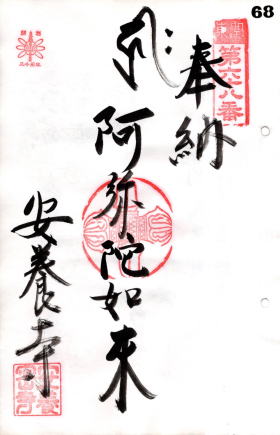 68
奉納
第六十八番
阿弥陀如来
安養寺